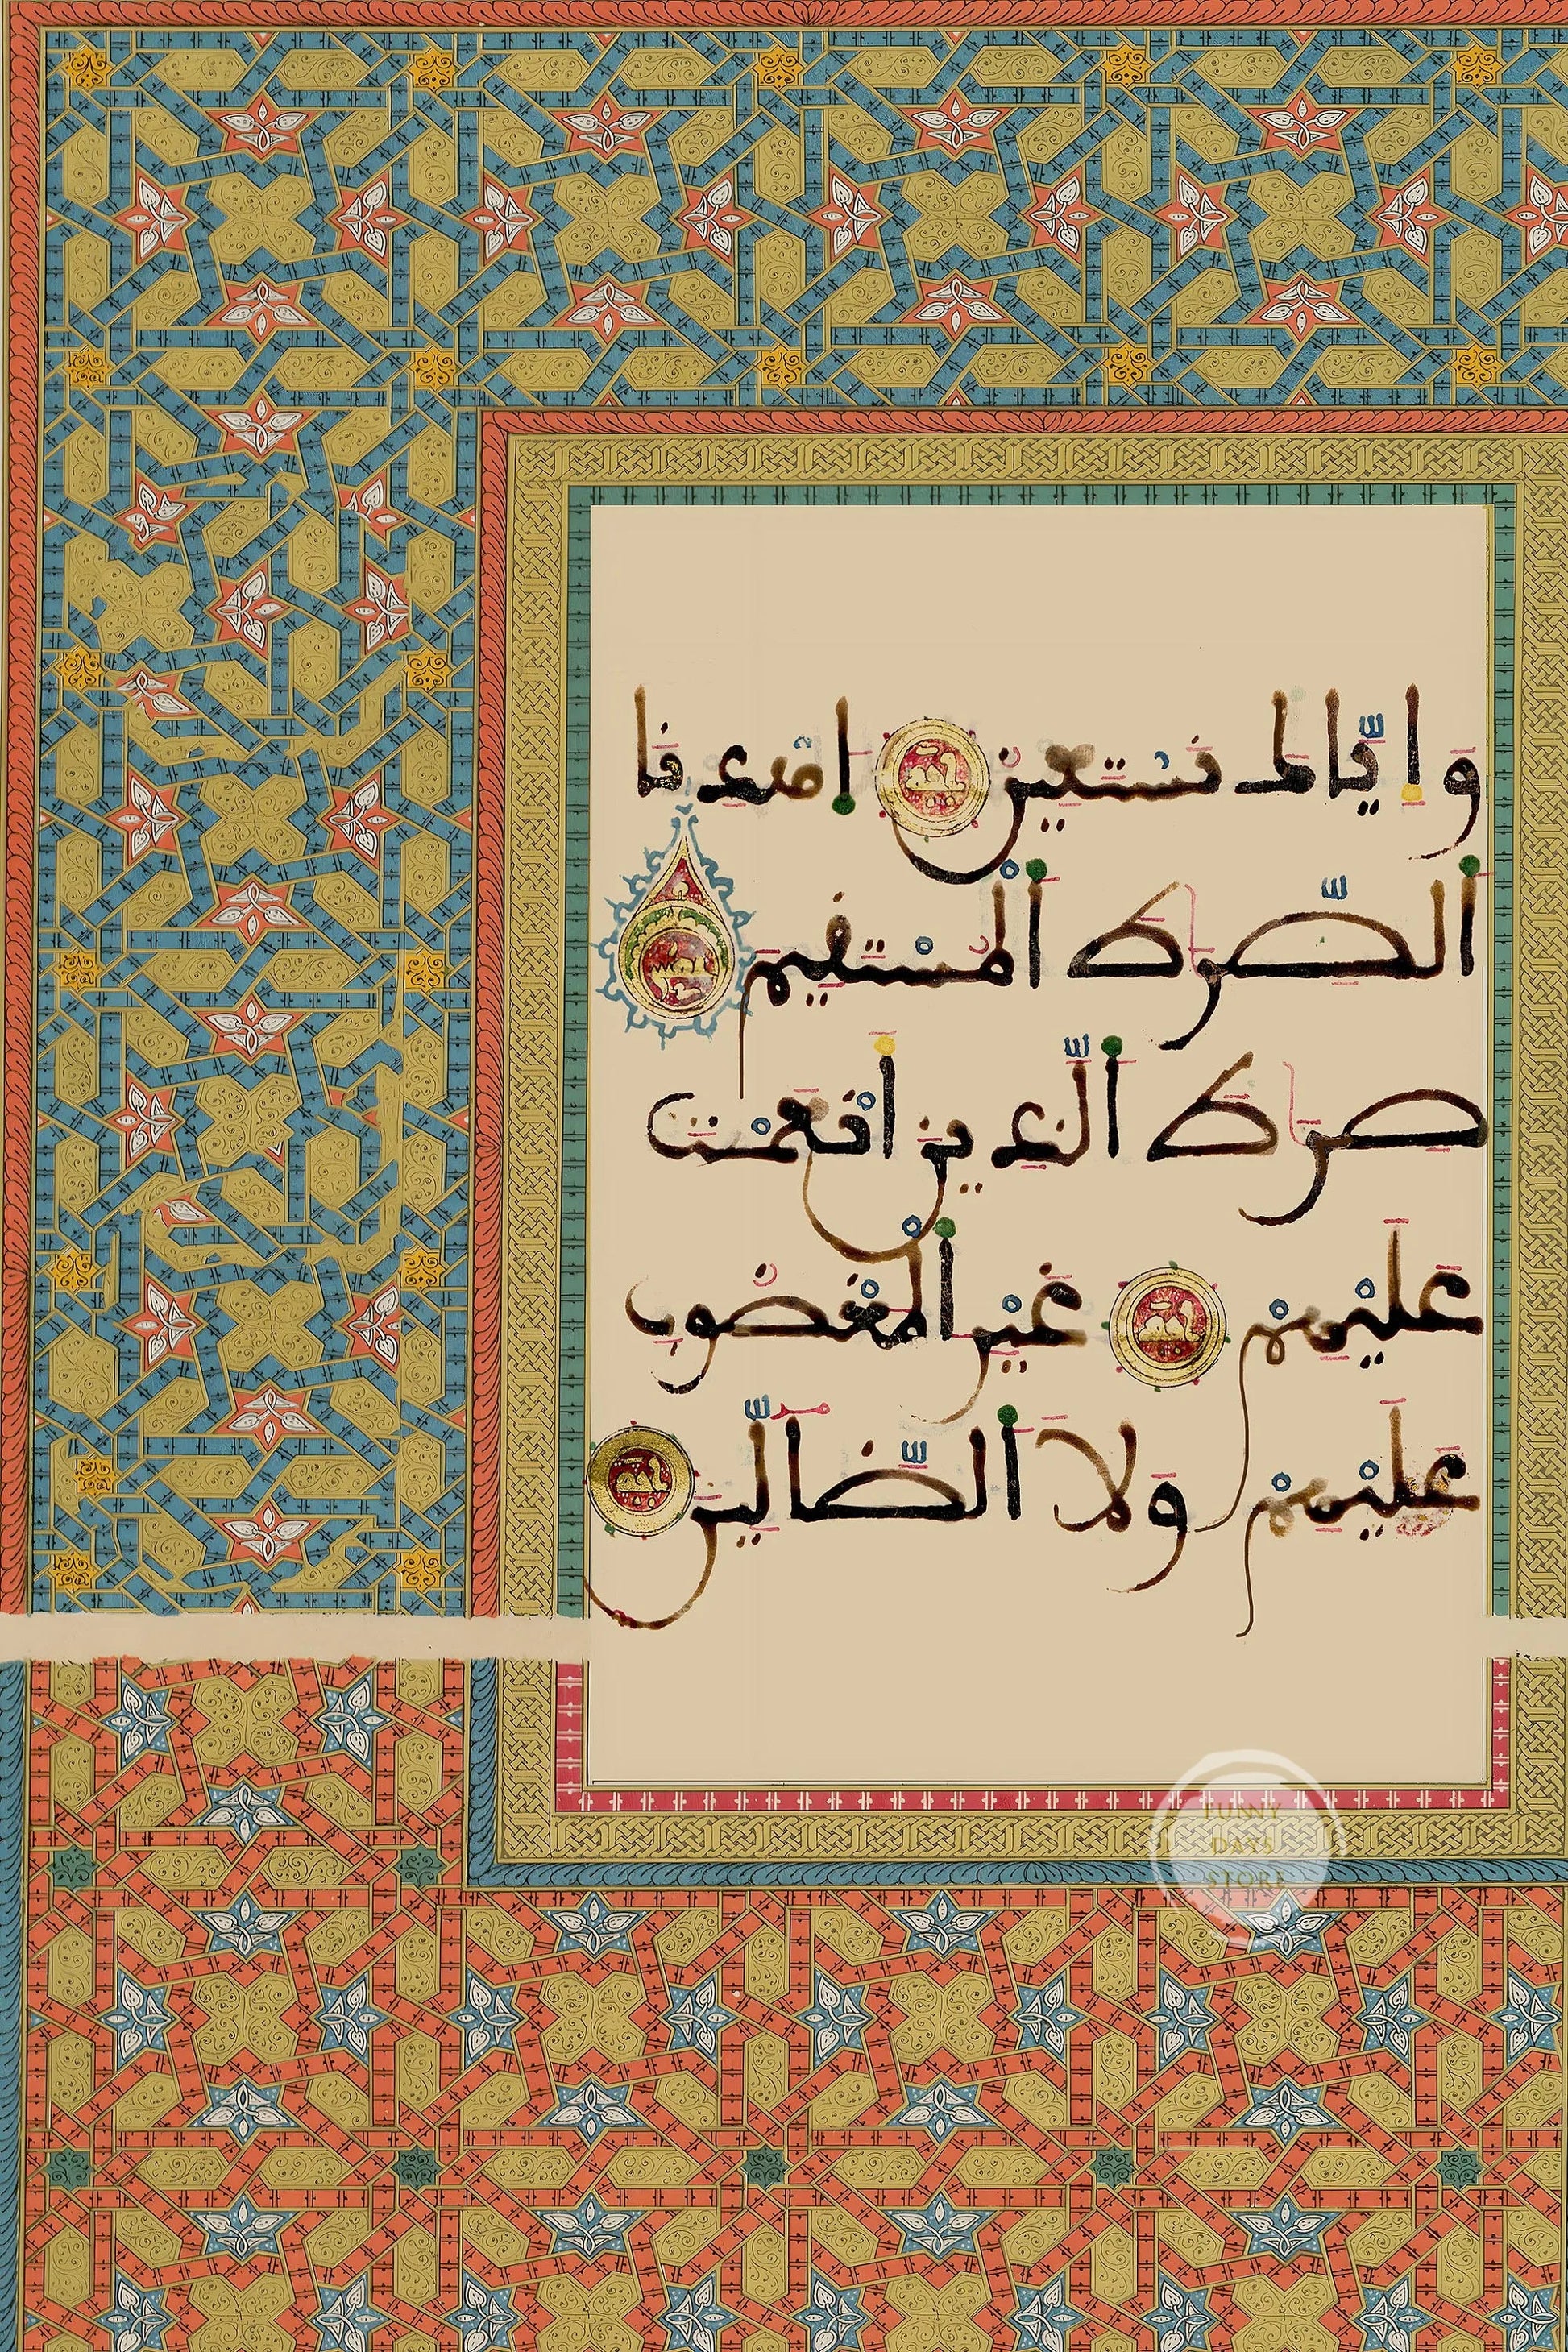 وإيّاك نستعين اهدنا
الصّرط المستقيم
صرط الّذين أنعمت
عليهم غير المغضوب
عليهم ولا الضّالّين
FUNNY
DAYS
STORE